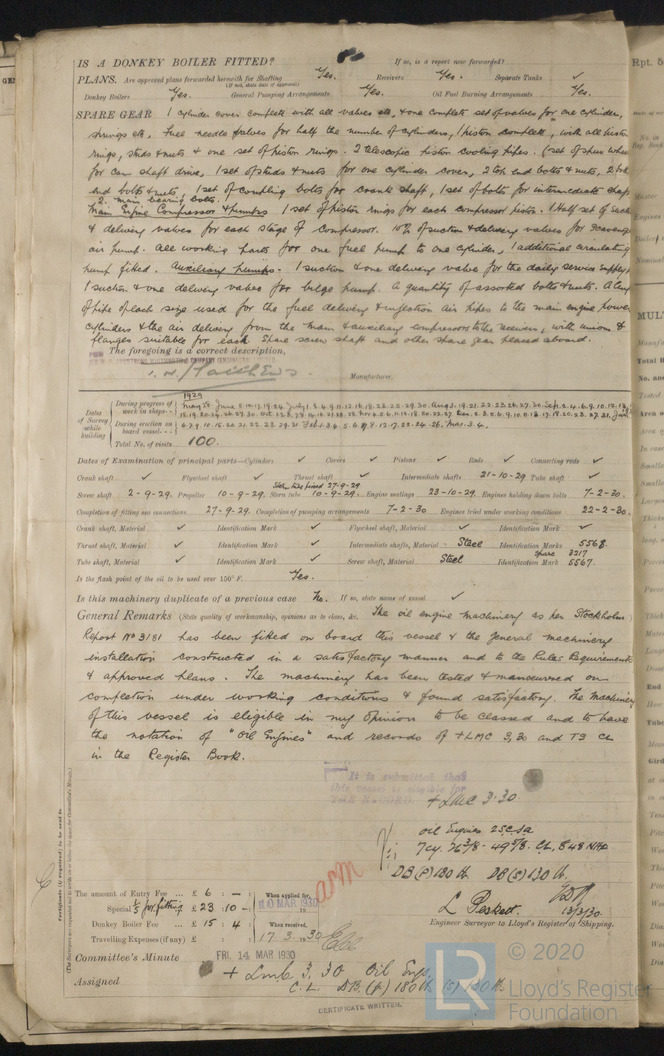 IS A DONKEY BOILER FITTED? If so, is a report now forwarded?
PLANS. Are approved plans forwarded herewith for Shafting Yes. Receivers Yes. Separate Tanks ✓
(If not, state date of approval)
Donkey Boilers Yes. General Pumping Arrangements Yes. Oil Fuel Burning Arrangements Yes.
SPARE GEAR 1 cylinder cover complete with all valves etc, & one complete set of valves for one cylinder,
springs etc. Fuel needle valves for half the number of cylinders, 1 piston complete, with all piston
rings, studs & nuts & one set of piston rings. 2 telescopic piston cooling pipes. 1 set of spur wheels
for cam shaft drive, 1 set of studs & nuts for one cylinder cover, 2 top end bolts & nuts, 2 bot
end bolts & nuts, 1 set of coupling bolts for crank shaft, 1 set of bolts for intermediate shaft,
2 main bearing bolts.
Main Engine Compressor & pumps 1 set of piston rings for each compressor piston. 1 Half set of suc
& delivery valves for each stage of compressor. 10% of suction & delivery valves for scavenge
air pump. All working parts for one fuel pump to one cylinder, 1 additional circulating
pump fitted. Auxiliary pumps. 1 suction & one delivery valve for the daily service supply
1 suction & one delivery valve for bilge pump. A quantity of assorted bolts & nuts. A leng
of pipe of each size used for the fuel delivery & inflation air pipes to the main engine power
cylinders & the air delivery from the main & auxiliary compressors to the receivers, with unions &
flanges suitable for each. Spare screw shaft and other spare gear placed aboard.
The foregoing is a correct description,
Manufacturer.
Dates of Survey while building
During progress of work in shops
1929
During erection on board vessel
Total No. of visits 100.
Dates of Examination of principal parts—Cylinders ✓ Covers ✓ Pistons ✓ Rods ✓ Connecting rods ✓
Crank shaft ✓ Flywheel shaft ✓ Thrust shaft ✓ Intermediate shafts 21-10-29 Tube shaft ✓
Stern tube fitted 27-9-29
Screw shaft 2-9-29. Propeller 10-9-29. Stern tube 10-9-29. Engine seatings 23-10-29. Engines holding down bolts 7-2-30.
Completion of fitting sea connections 27-9-29. Completion of pumping arrangements 7-2-30 Engines tried under working conditions 22-2-30.
Crank shaft, Material ✓ Identification Mark ✓ Flywheel shaft, Material ✓ Identification Mark ✓
Thrust shaft, Material ✓ Identification Mark ✓ Intermediate shafts, Material Steel Identification Marks 5568.
spare 3217
Tube shaft, Material ✓ Identification Mark ✓ Screw shaft, Material Steel Identification Mark 5567.
Is the flash point of the oil to be used over 150° F. Yes.
Is this machinery duplicate of a previous case No. If so, state name of vessel ✓
General Remarks (State quality of workmanship, opinions as to class, &c. The oil engine machinery as per Stockholm
Report No 3181 has been fitted on board this vessel & the general machinery
installation constructed in a satisfactory manner and to the Rules Requirements
& approved plans. The machinery has been tested & manoeuvred on
completion under working conditions & found satisfactory. The machinery
of this vessel is eligible in my opinion to be classed and to have
the notation of "Oil Engines" and records of + LMC 3,30 and TS CL
in the Register Book.
It is submitted that
this vessel is eligible for
THE RECORD. + LMC 3.30
Oil Engines 2SCSA
7cy. 26 3/8 - 49 5/8. CL. 848 NHP
DB (P) 180 lb. DB (S) 130 lb.
The amount of Entry Fee .. £ 6 : - :
Special 1/5 for fitting £ 23 : 10 -
Donkey Boiler Fee ... £ 15 : 4 :
Travelling Expenses (if any) £ : :
When applied for,
10 MAR 1930
When received,
17.3.1930
L Peskett. 13/3/30.
Engineer Surveyor to Lloyd's Register of Shipping.
Committee's Minute FRI. 14 MAR 1930
Assigned + LMC 3.30 Oil Engs.
C.L. DB. (P) 180 lb (S) 130 lb.
CERTIFICATE WRITTEN.
© 2020
Lloyd's Register
Foundation
LR
Rpt. 5
MULT